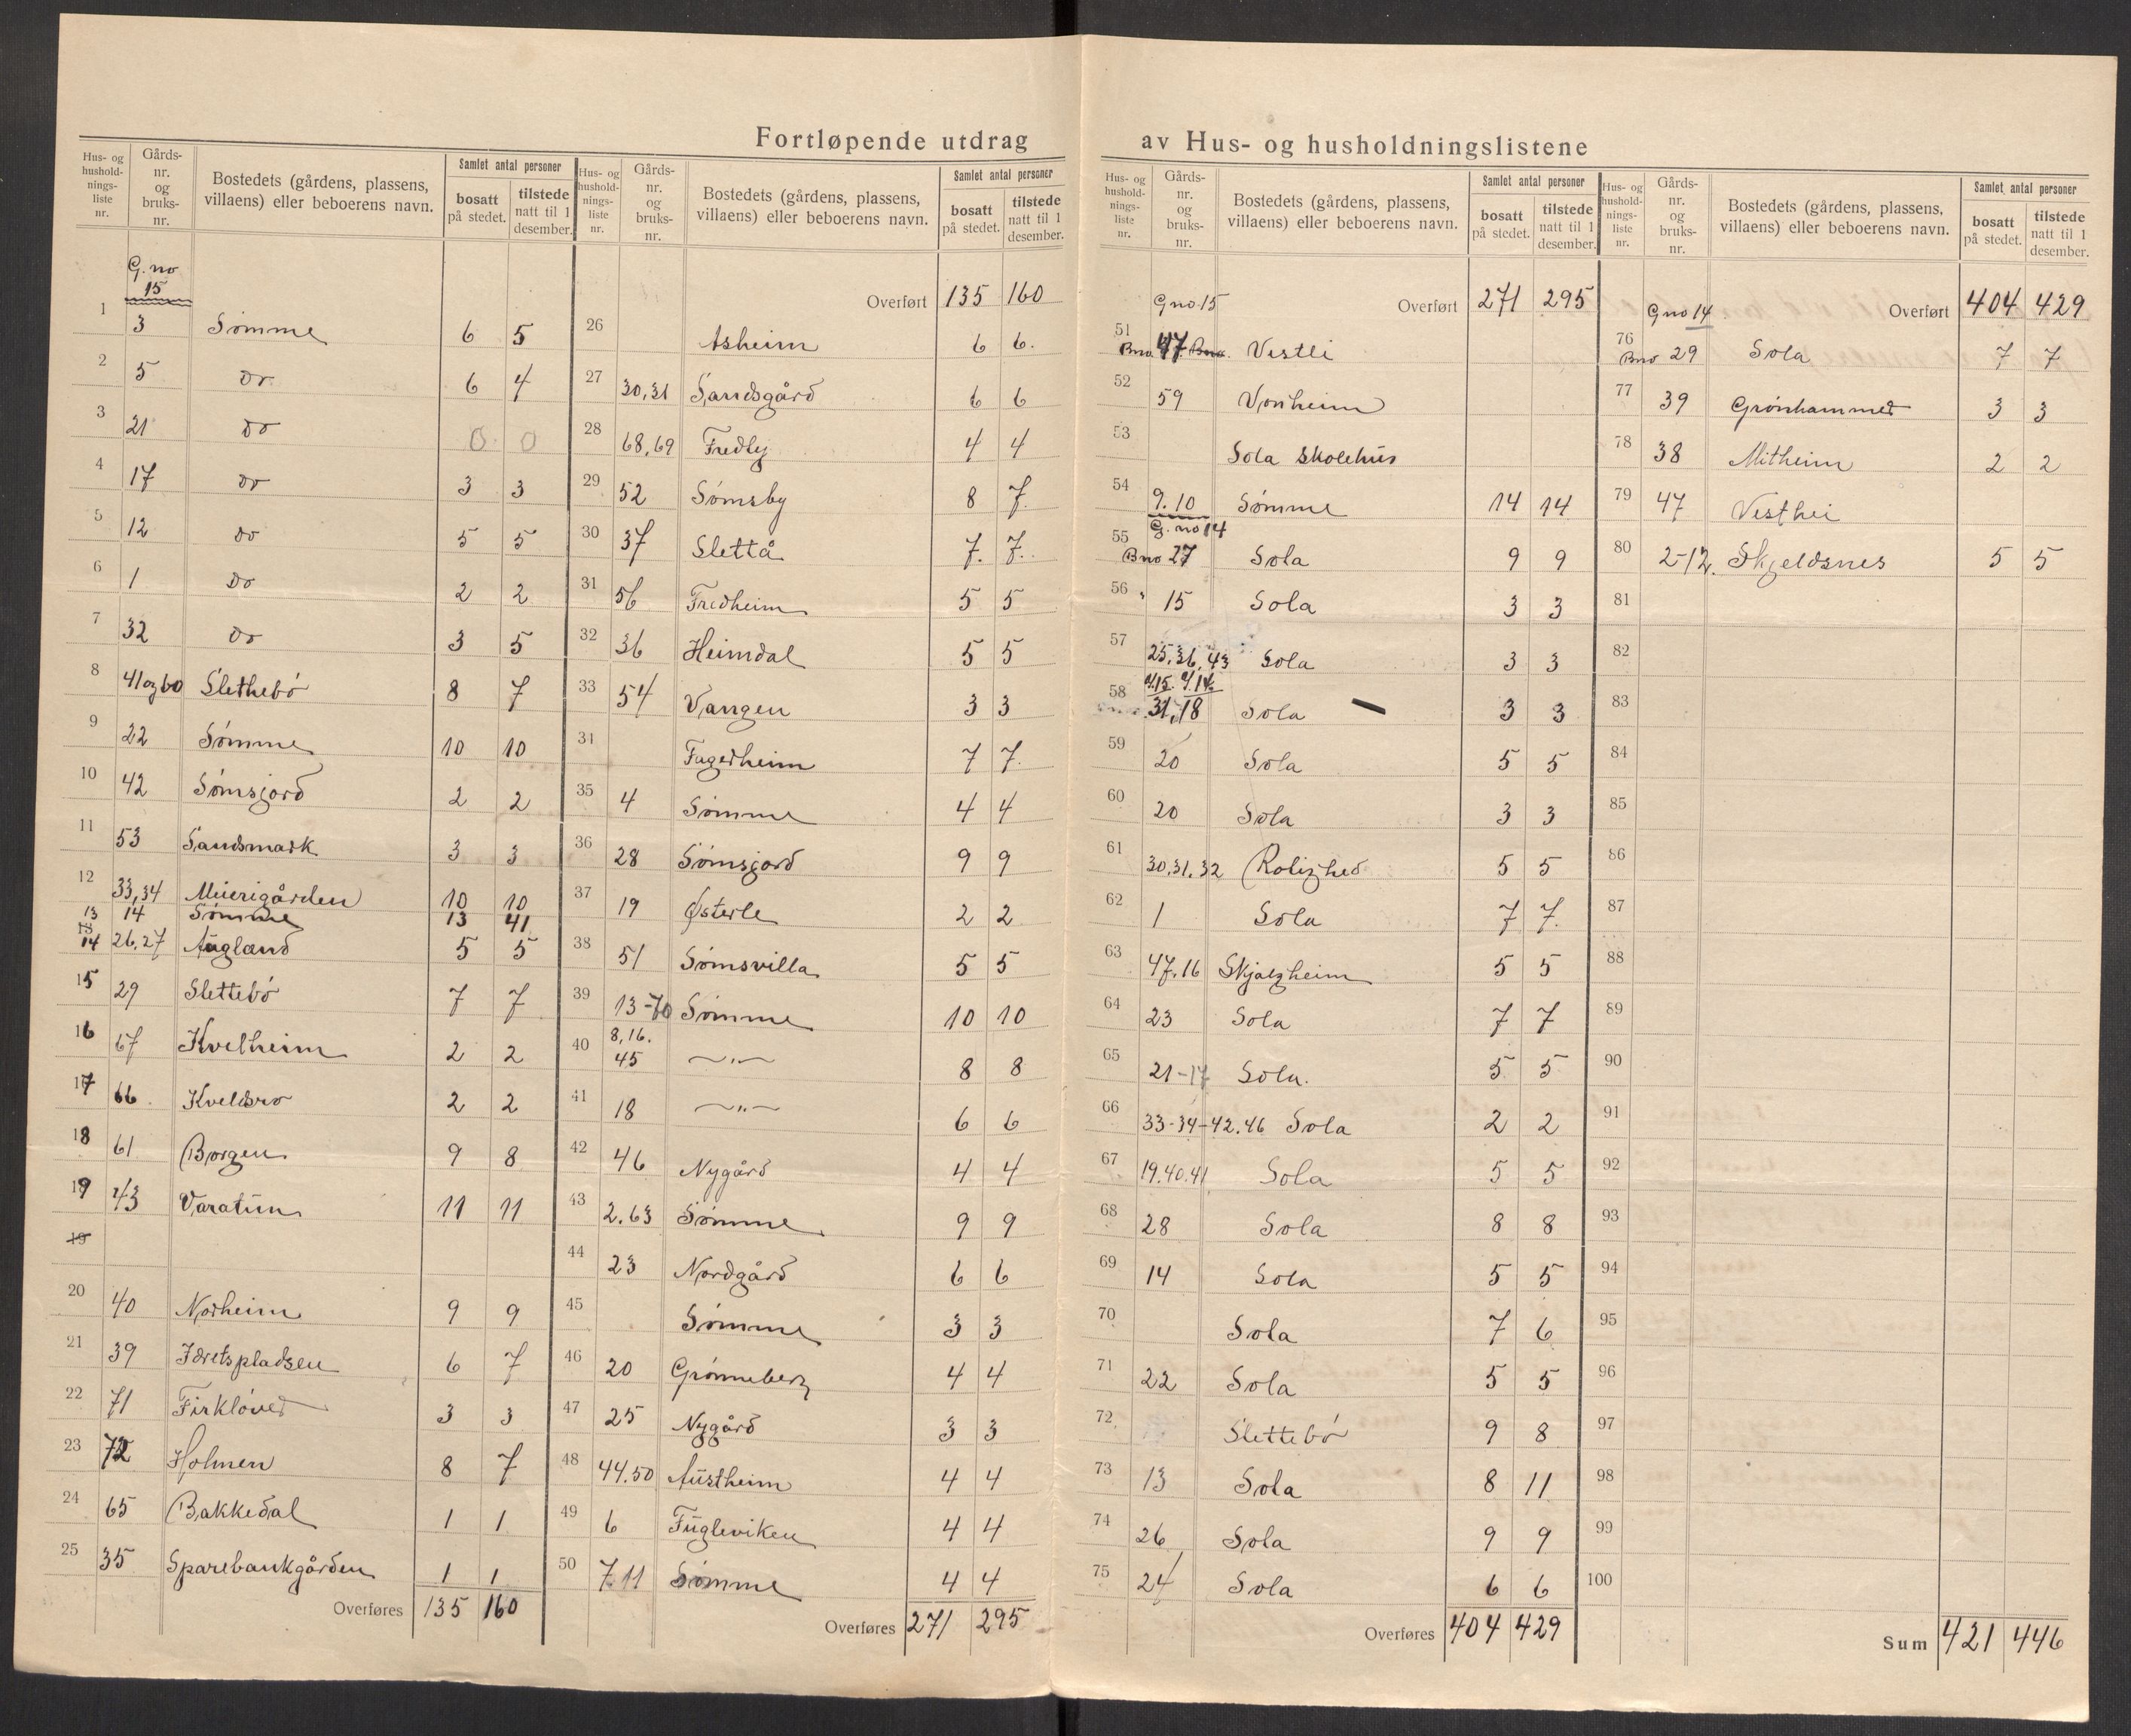 Fortløpende utdrag av Hus- og husholdningslistene
Hus- og hushold-nings-liste nr. | Gårds-nr. og bruks-nr. | Bostedets (gårdens, plassens, villaens) eller beboerens navn. | Samlet antal personer | bosatt på stedet. | tilstede natt til 1 desember.
G. no
15
1 3 Sømme 6 5
2 5 do 6 4
3 21 do 0 0
4 17 do 3 3
5 12 do 5 5
6 1 do 2 2
7 32 do 3 5
8 41 og 60 Slethebö 8 7
9 22 Sømme 10 10
10 42 Sømsjord 2 2
11 53 Sandsmark 3 3
12 33,34 Meierigården 10 10
13 14 Sømme 13 41
14 26,27 Augland 5 5
15 29 Slettebö 7 7
16 67 Kvelheim 2 2
17 66 Kveldsro 2 2
18 61 Borgen 9 8
19 43 Varatun 11 11
19
20 40 Norheim 9 9
21 39 Idretspladsen 6 7
22 71 Firkløver 3 3
23 72 Holmen 8 7
24 65 Bakkedal 1 1
25 35 Sparebankgården 1 1
Overføres 135 160
Hus- og hushold-nings-liste nr. | Gårds-nr. og bruks-nr. | Bostedets (gårdens, plassens, villaens) eller beboerens navn. | Samlet antal personer | bosatt på stedet. | tilstede natt til 1 desember.
Overført 135 160
26 Asheim 6 6.
27 30,31 Sandsgård 6 6
28 68,69 Fredly 4 4
29 52 Sømsby 8 7.
30 37 Slettå 7. 7.
31 56 Fredheim 5 5
32 36 Heimdal 5 5
33 54 Vangen 3 3
34 Fagerheim 7 7.
35 4 Sømme 4 4
36 28 Sømsjord 9 9
37 19 Østerle 2 2
38 51 Sømsvilla 5 5
39 13-70 Sømme 10 10
40 8,16. 45 —"— 8 8
41 18 —"— 6 6
42 46 Nygård 4 4
43 2.63 Sømme 9 9
44 23 Nordgård 6 6
45 Sømme 3 3
46 20 Grønneberg 4 4
47 25 Nygård 3 3
48 44.50 Austheim 4 4
49 6 Fugleviken 4 4
50 7.11 Sømme 4 4
Overføres 271 295
Hus- og hushold-nings-liste nr. | Gårds-nr. og bruks-nr. | Bostedets (gårdens, plassens, villaens) eller beboerens navn. | Samlet antal personer | bosatt på stedet. | tilstede natt til 1 desember.
G no 15 Overført 271 295
51 Bno 47 Bno. Vestli
52 59 Vonheim
53 Sola Skolehus
54 9.10 Sømme 14 14
G. no 14
55 Bno 27 Sola 9 9
56 15 Sola 3 3
57 25,36,43 Sola 3 3
58 31,18 Sola 3 3
59 20 Sola 5 5
60 20 Sola 3 3
61 30.31.32 Rolighed 5 5
62 1 Sola 7 7.
63 47.16 Skjalgheim 5 5
64 23 Sola 7 7
65 21-17 Sola. 5 5
66 33-34-42.46 Sola 2 2
67 19.40.41 Sola 5 5
68 28 Sola 8 8
69 14 Sola 5 5
70 Sola 7 6
71 22 Sola 5 5
72 Slettebö 9 8
73 13 Sola 8 11
74 26 Sola 9 9
75 24 Sola 6 6
Overføres 404 429
Hus- og hushold-nings-liste nr. | Gårds-nr. og bruks-nr. | Bostedets (gårdens, plassens, villaens) eller beboerens navn. | Samlet antal personer | bosatt på stedet. | tilstede natt til 1 desember.
G no 14 Overført 404 429
76 Bno 29 Sola 7 7
77 39 Grønhammer 3 3
78 38 Mitheim 2 2
79 47 Vesthei
80 2-12. Skjeldsnes 5 5
81
82
83
84
85
86
87
88
89
90
91
92
93
94
95
96
97
98
99
100
Sum 421 446